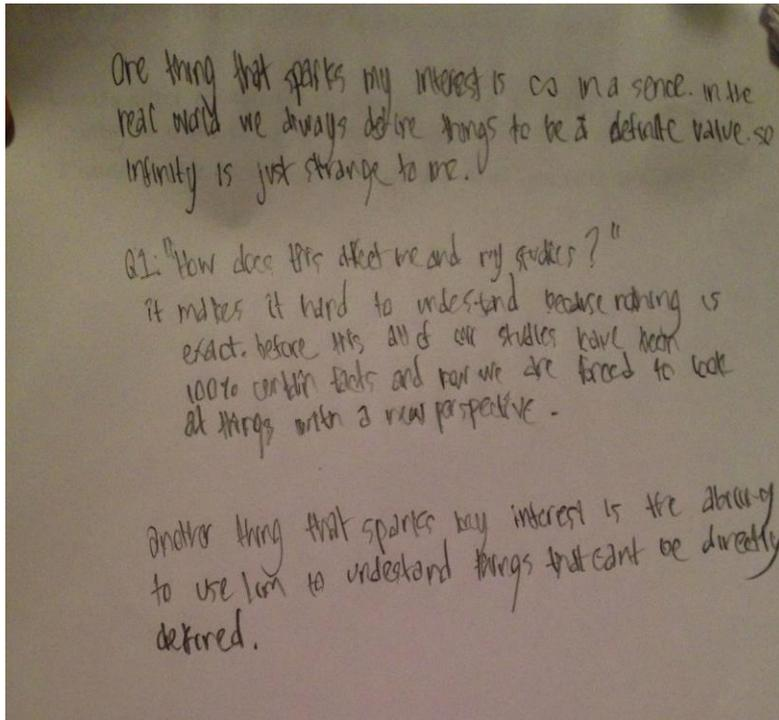 One thing that sparks my interest is ∞ in a sence. in the
real world we always define things to be a definite value. so
infinity is just strange to me.
Q1: "How does this affect me and my studies?"
it makes it hard to undestand because nothing is
exact. before this all of our studies have been
100% certain facts and now we are forced to look
at things with a new perspective.
another thing that sparks my interest is the ability
to use lim to undestand things that cant be directly
defined.